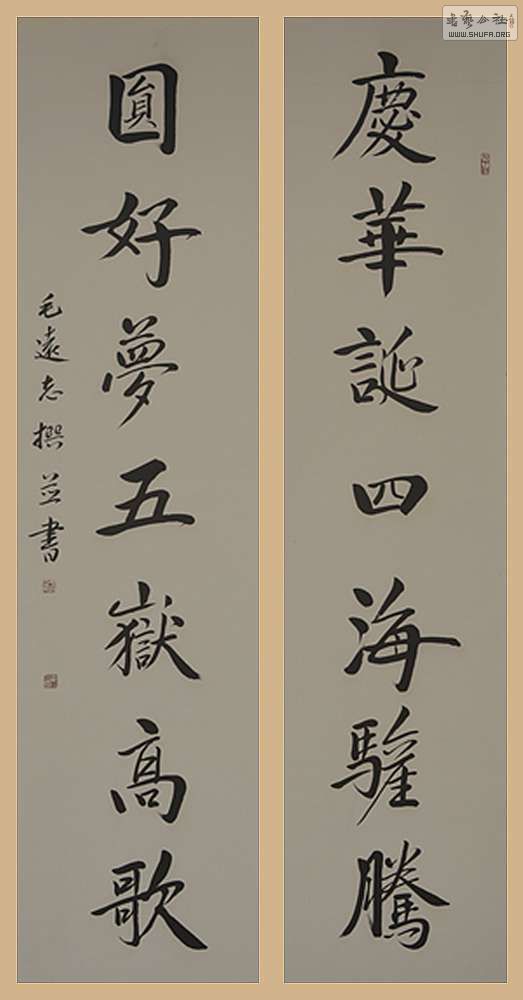 慶華誕四海驩騰
圓好夢五嶽高歌
毛遠志撰並書
書藝公社
WWW.SHUFA.ORG